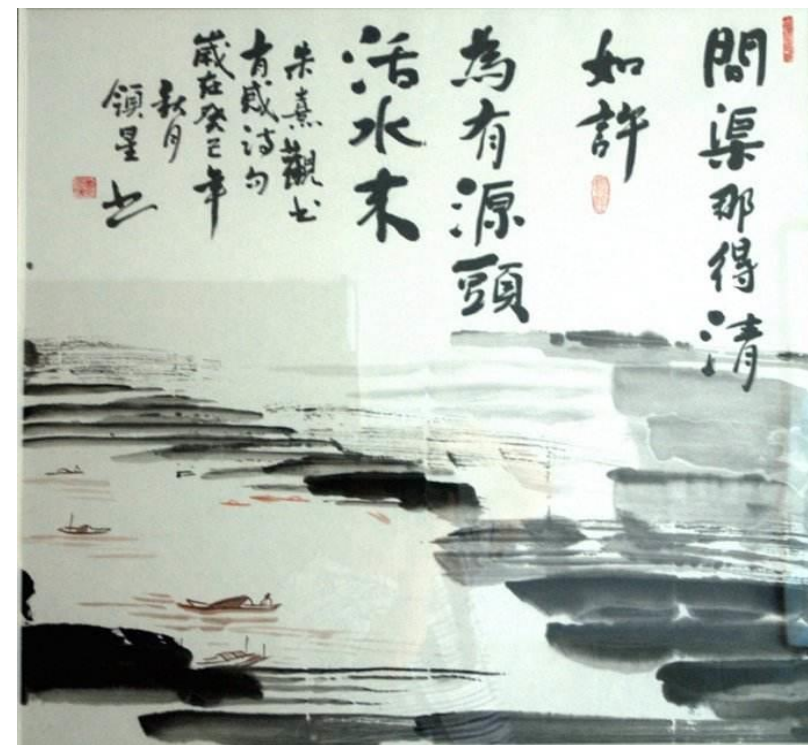 問渠那得清
如許
為有源頭
活水来
朱熹觀书
有感诗句
歲在癸巳年
秋月
領星书